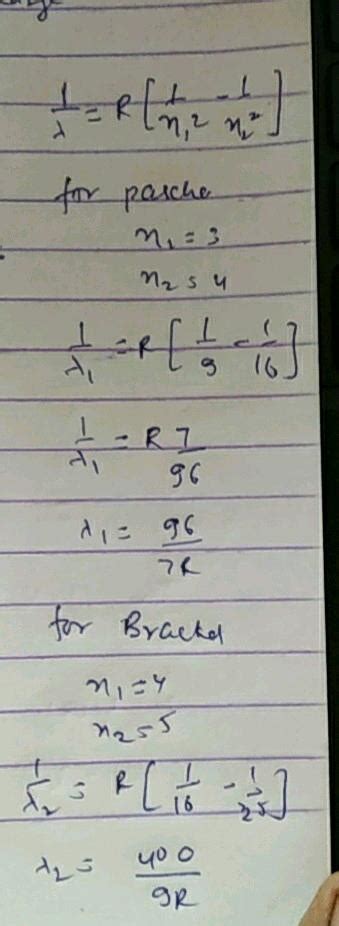 1/λ = R [ 1/n₁² - 1/n₂² ]
for pasche
n₁ = 3
n₂ = 4
1/λ₁ = R [ 1/9 - 1/16 ]
1/λ₁ = R 7/96
λ₁ = 96/7R
for Bracket
n₁ = 4
n₂ = 5
1/λ₂ = R [ 1/16 - 1/25 ]
λ₂ = 400/9R